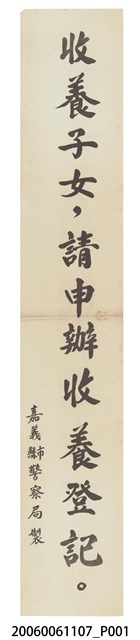 收養子女，請申辦收養登記。
嘉義縣警察局製
20060061107_P001